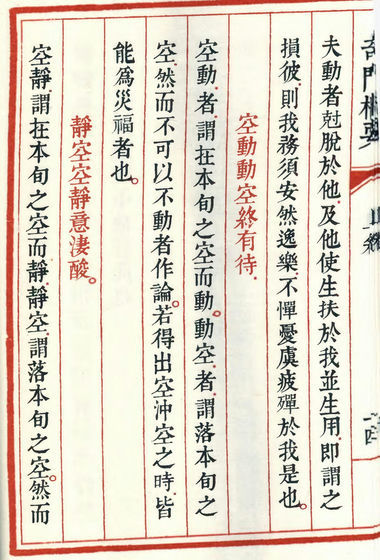 奇門樞要
夫動者尅脫於他及他使生扶於我並生用即謂之
損彼則我務須安然逸樂不憚憂虞疲殫於我是也。
空動動空終有待
空動者謂在本旬之空而動。動空者謂落本旬之
空然而不可以不動者作論。若得出空沖空之時皆
能為災福者也。
靜空空靜意淒酸。
空靜謂在本旬之空而靜靜空謂落本旬之空。然而